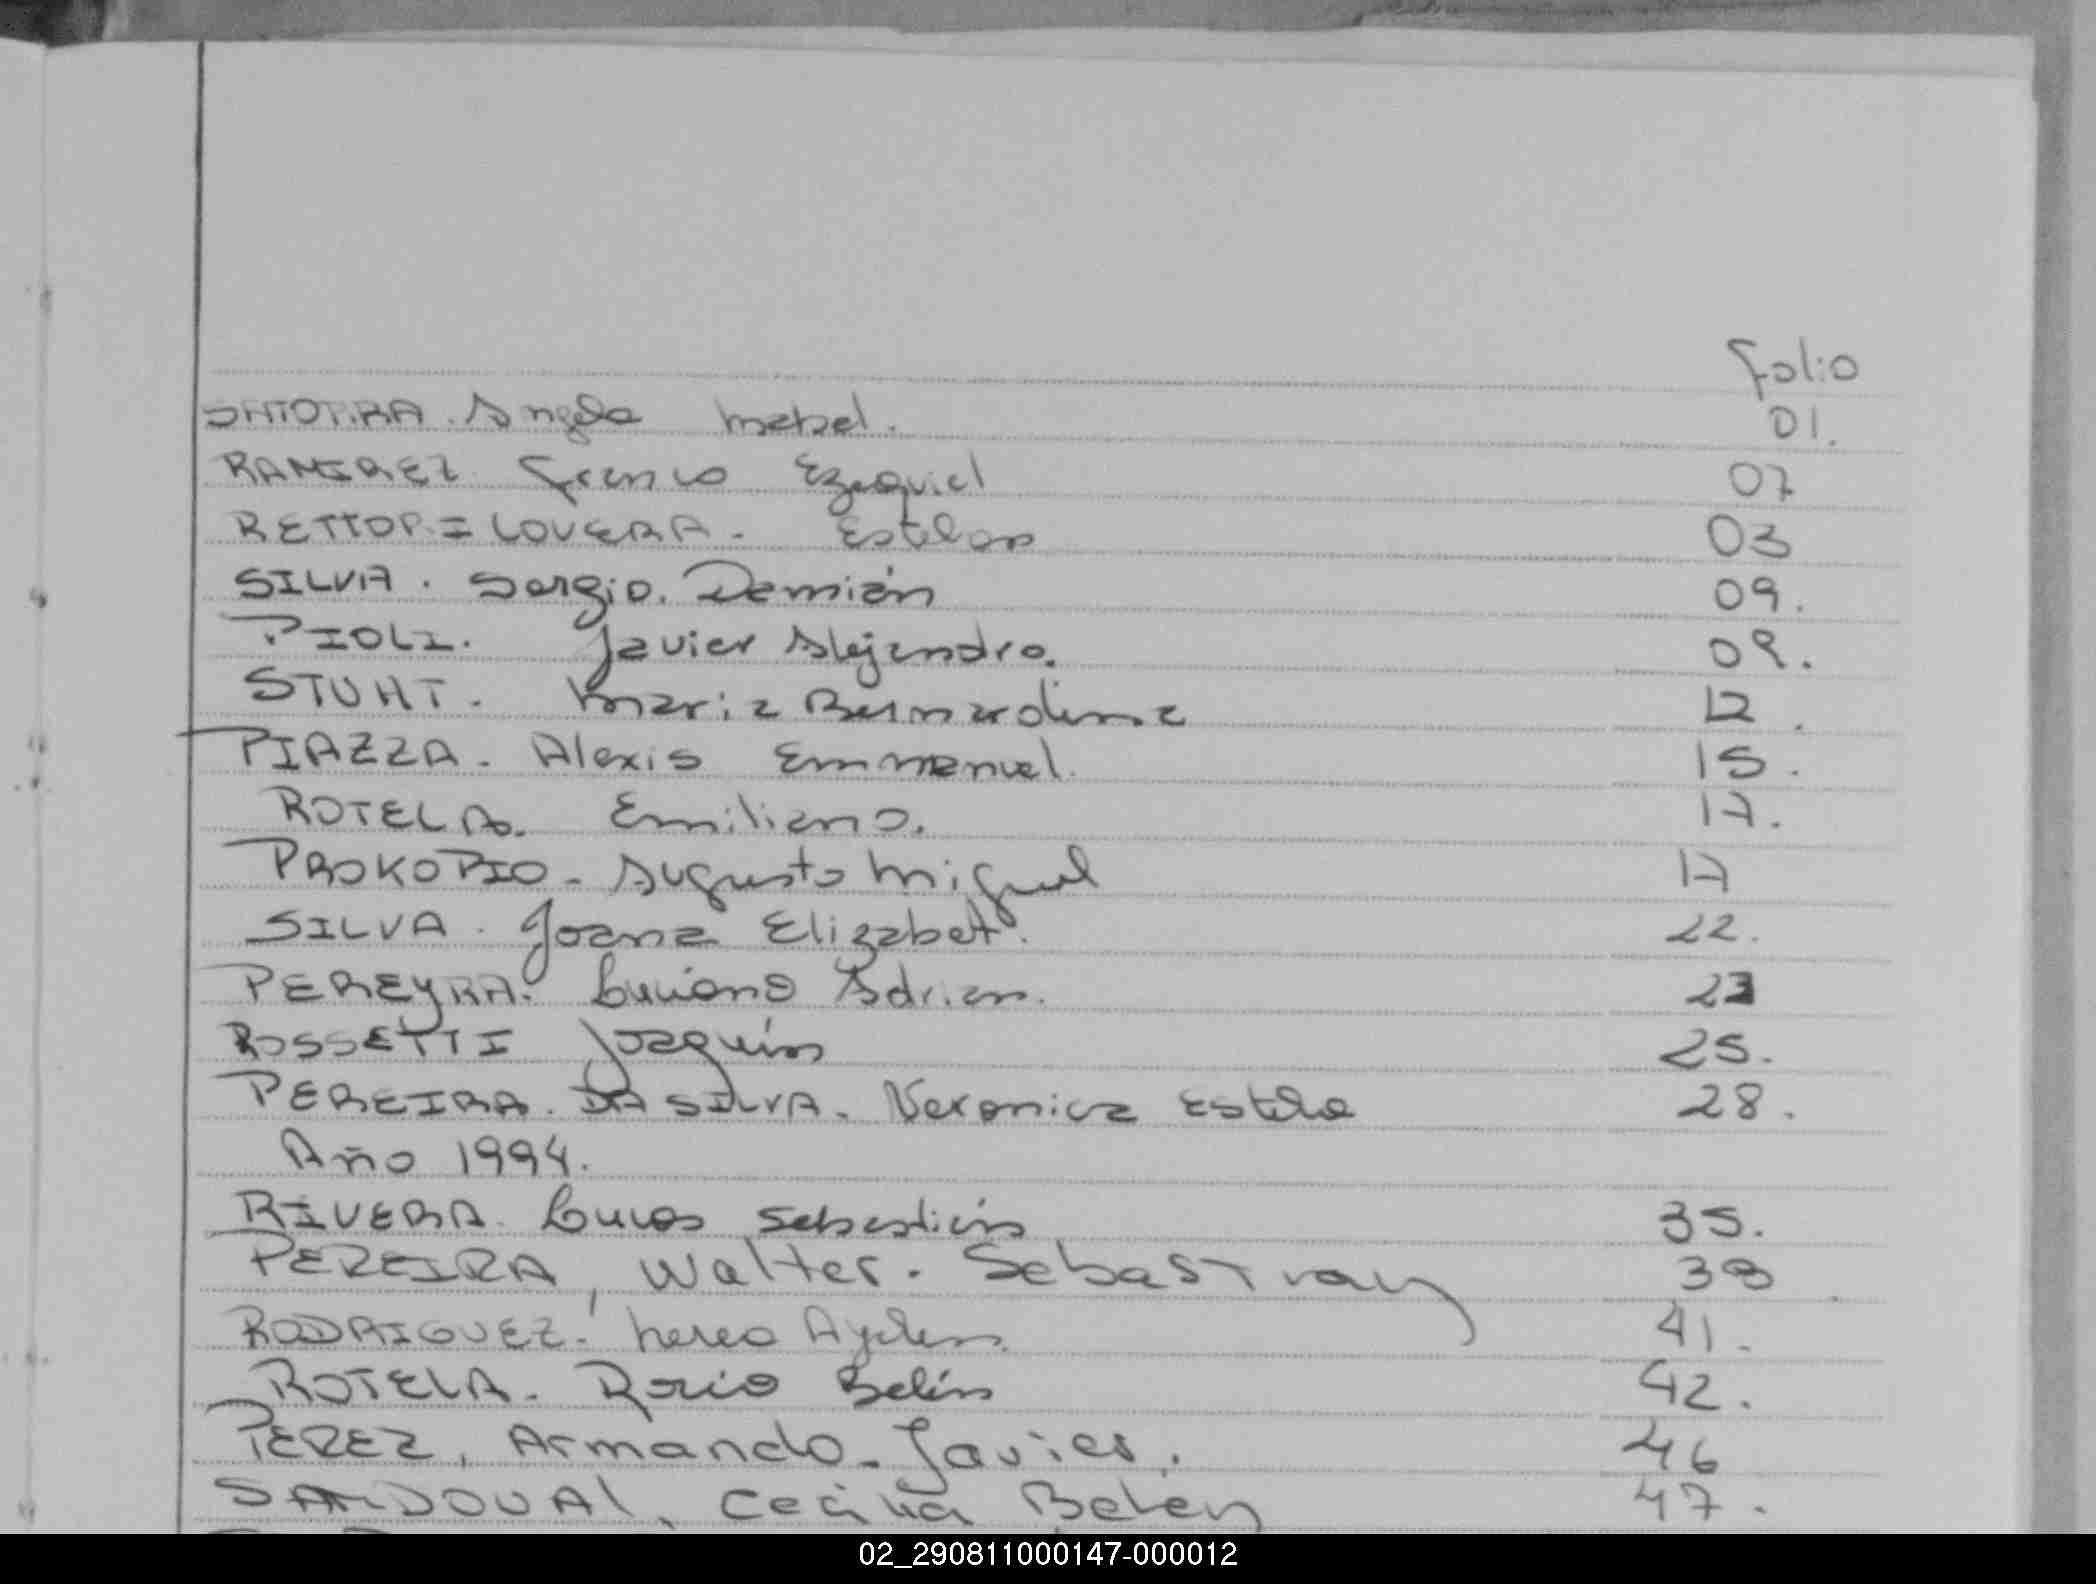 Folio
Angela Mabel. 01.
RAMIREZ Franco Ezequiel 07
RETTORI LOVERA. Esteban 03
SILVA. Sergio. Demián 09.
PIOLI. Javier Alejandro. 09.
STUHT. Maria Bernardina 12.
PIAZZA. Alexis Emmanuel. 15.
ROTELA. Emiliano. 17.
PROKOPIO - Augusto Miguel 17
SILVA. Joana Elizabet. 22.
PEREYRA. Luciano Adrian. 23
ROSSETTI Joaquín 25.
PEREIRA. DA SILVA. Veronica Estela 28.
Año 1994.
RIVERA. Lucas Sebastián 35.
PEREIRA, Walter. Sebastian 38
RODRIGUEZ. Nerea Ayelen. 41.
ROTELA. Rocio Belén 42.
PEREZ, Armando - Javier. 46
SANDOVAL, Cecilia Belen 47.
02_290811000147-000012